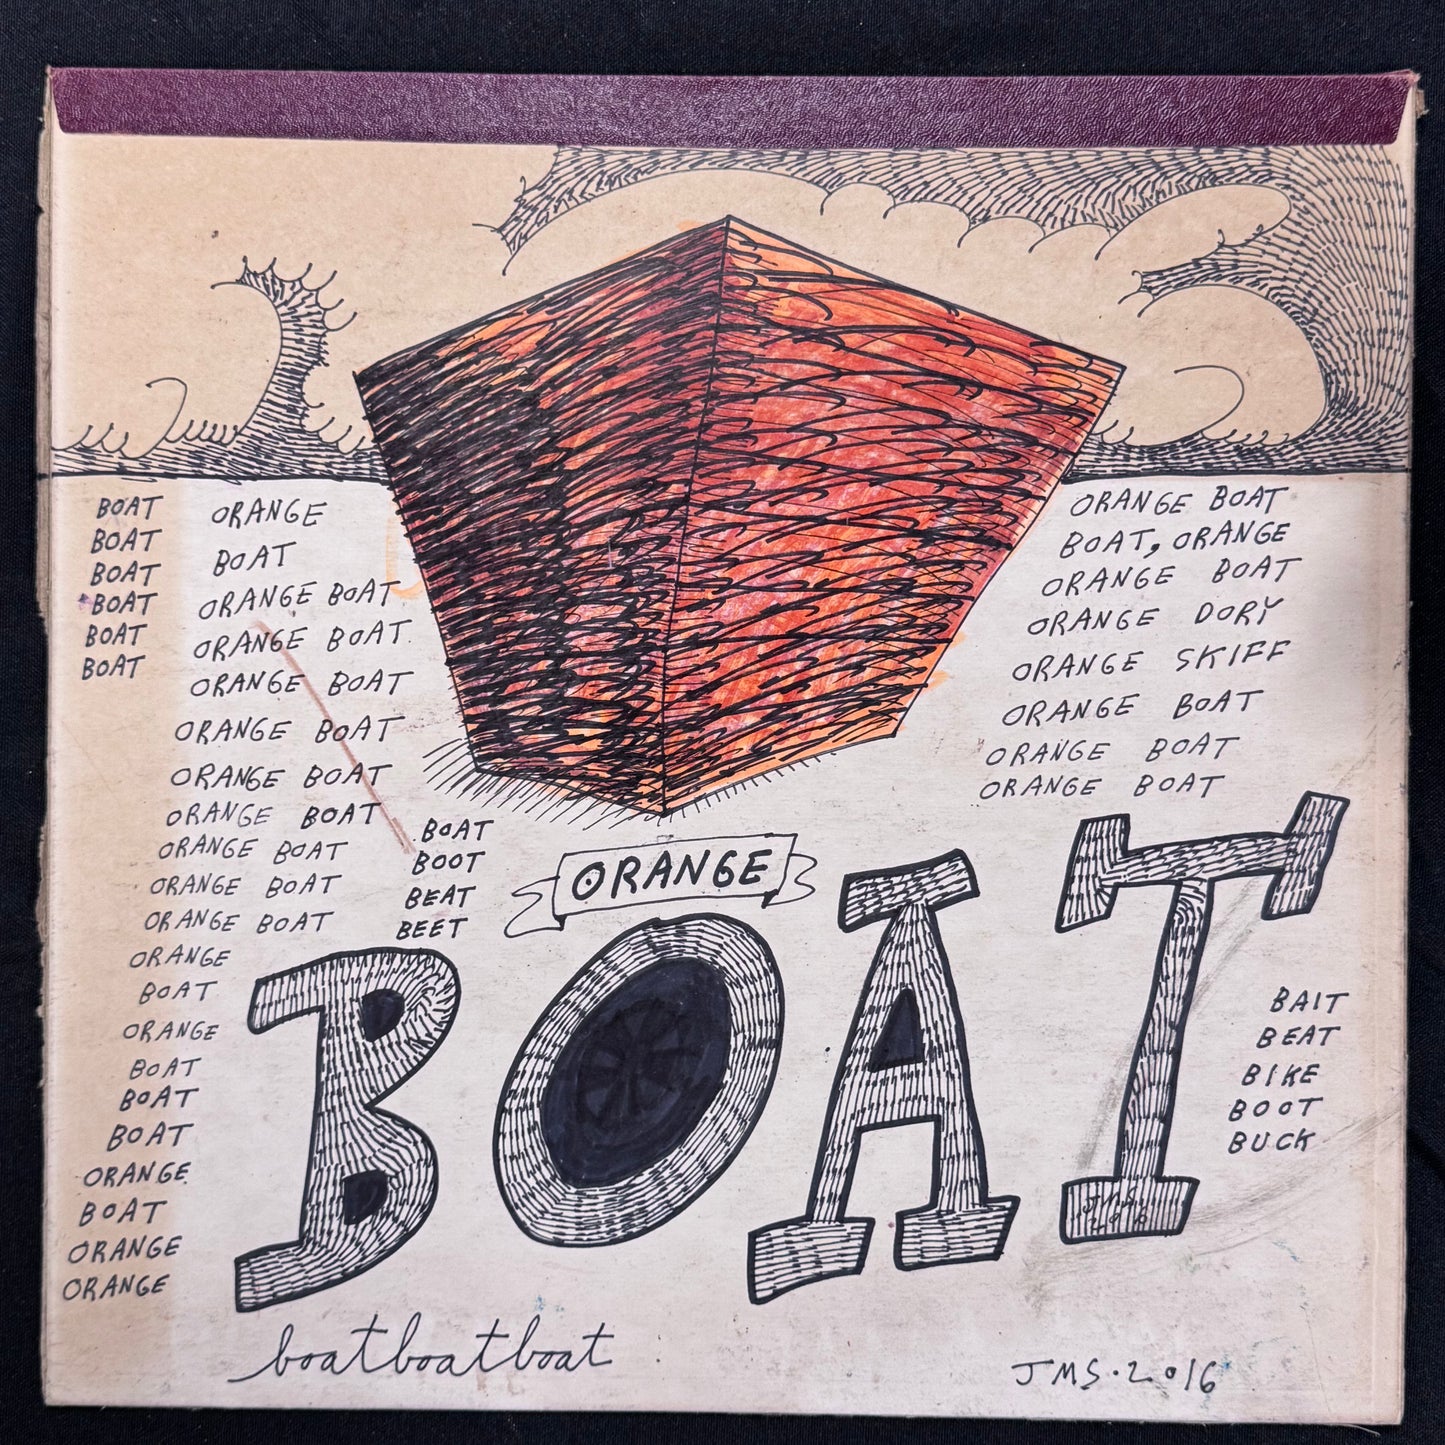 BOAT
BOAT
BOAT
BOAT
BOAT
BOAT
ORANGE
BOAT
ORANGE BOAT
ORANGE BOAT.
ORANGE BOAT
ORANGE BOAT
ORANGE BOAT
ORANGE BOAT
ORANGE BOAT
ORANGE BOAT
ORANGE BOAT
ORANGE
BOAT
ORANGE
BOAT
BOAT
BOAT
ORANGE
BOAT
ORANGE
ORANGE
BOAT
BOOT
BEAT
BEET
ORANGE BOAT
BOAT, ORANGE
ORANGE BOAT
ORANGE DORY
ORANGE SKIFF
ORANGE BOAT
ORANGE BOAT
ORANGE BOAT
ORANGE
BOAT
BAIT
BEAT
BIKE
BOOT
BUCK
boatboatboat
JMS·2016